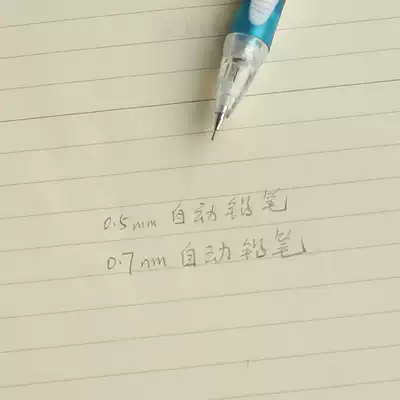 0.5mm 自动铅笔
0.7mm 自动铅笔